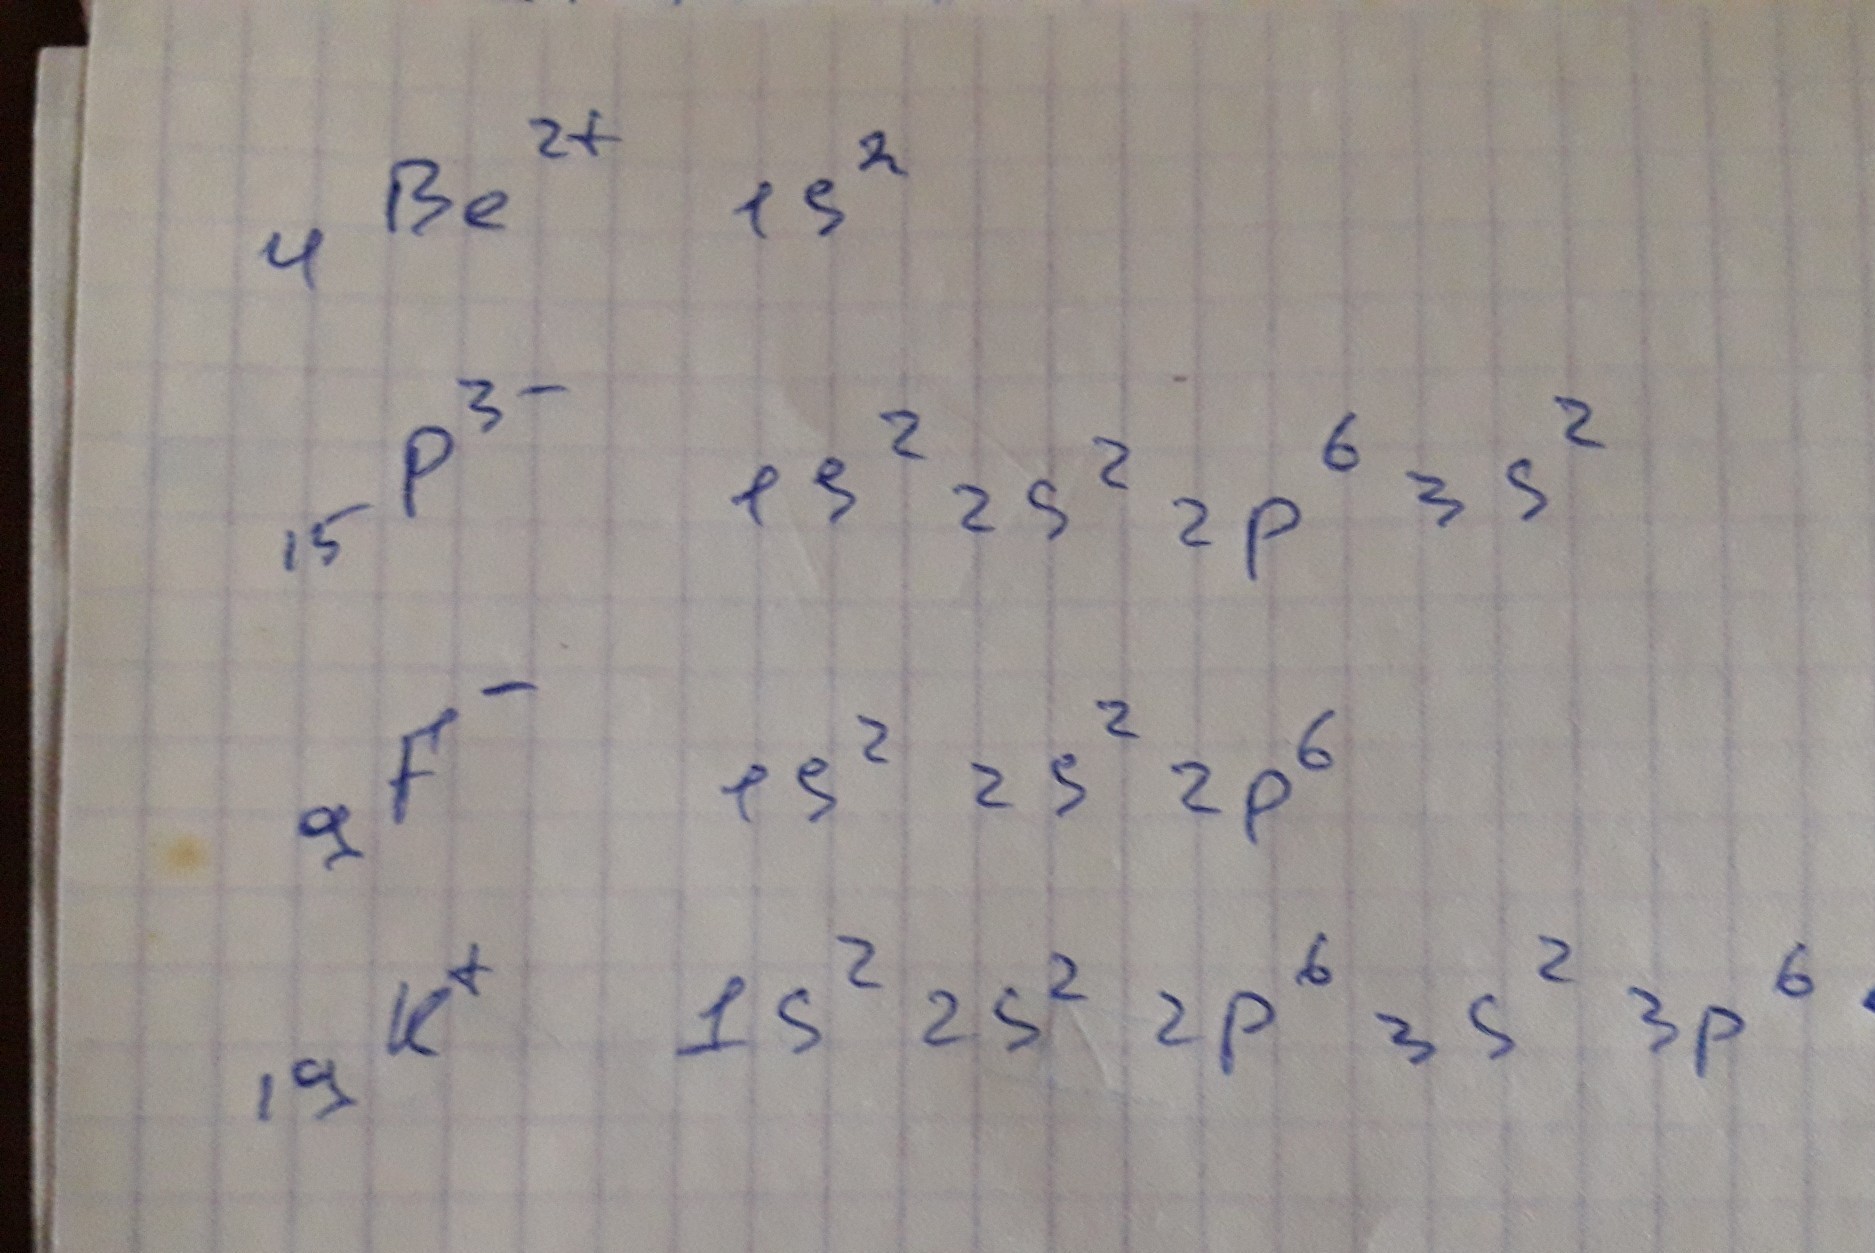 ₄Be²⁺ 1s²
₁₅P³⁻ 1s² 2s² 2p⁶ 3s²
₉F⁻ 1s² 2s² 2p⁶
₁₉K⁺ 1s² 2s² 2p⁶ 3s² 3p⁶